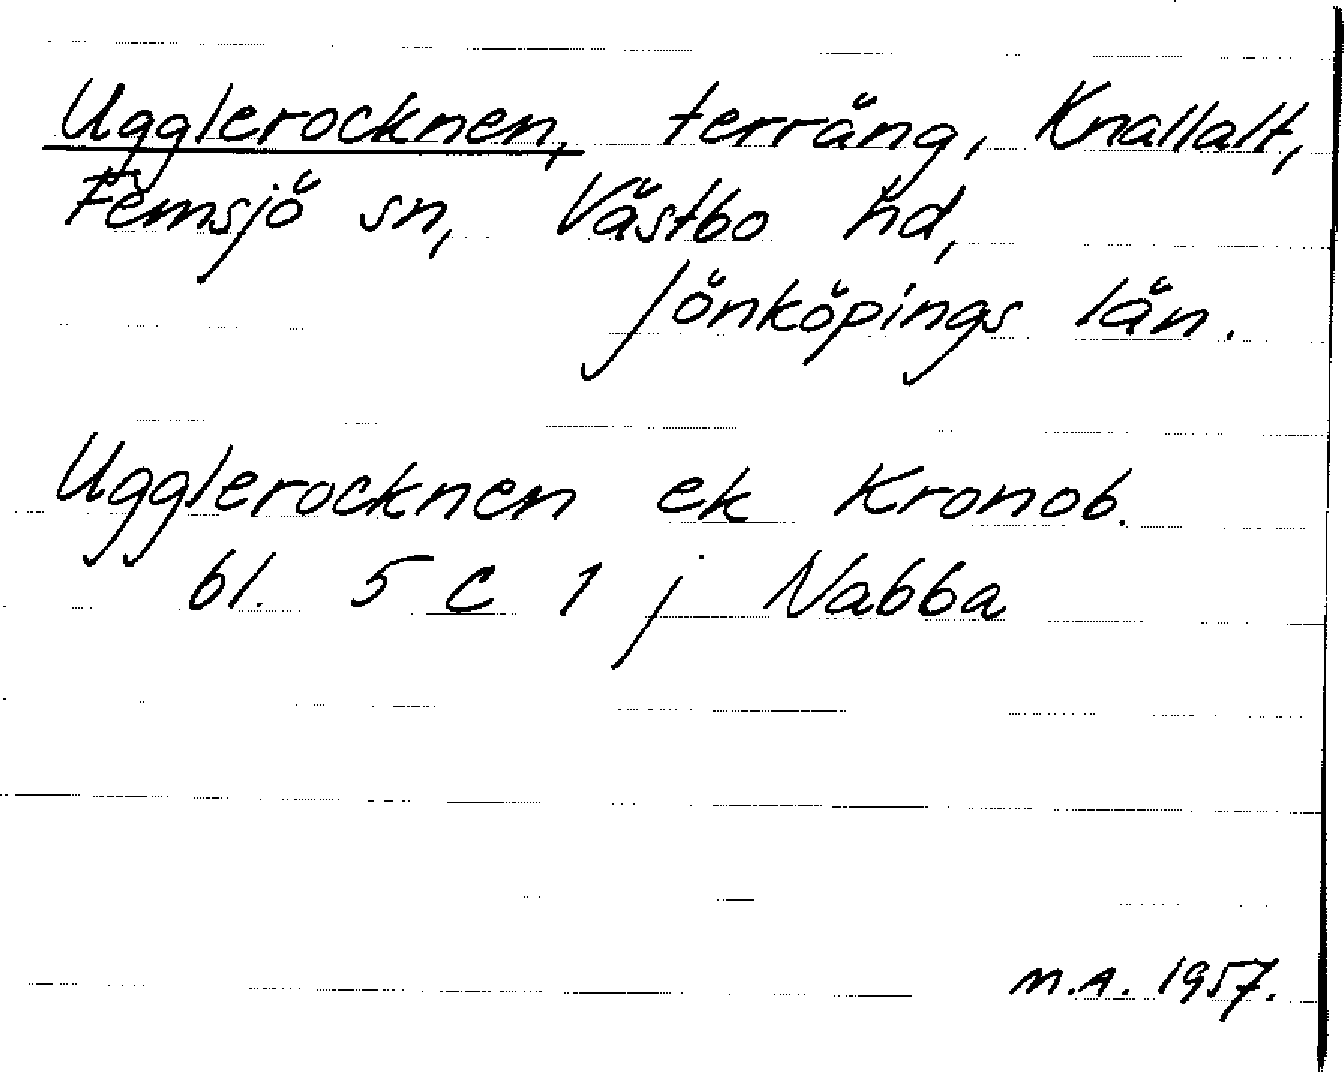 Ugglerocknen, terräng, Knallalt,
Femsjö sn, Västbo hd,
Jönköpings län.
Ugglerocknen ek Kronob.
bl. 5 C 1 j Nabba
M.A. 1957.